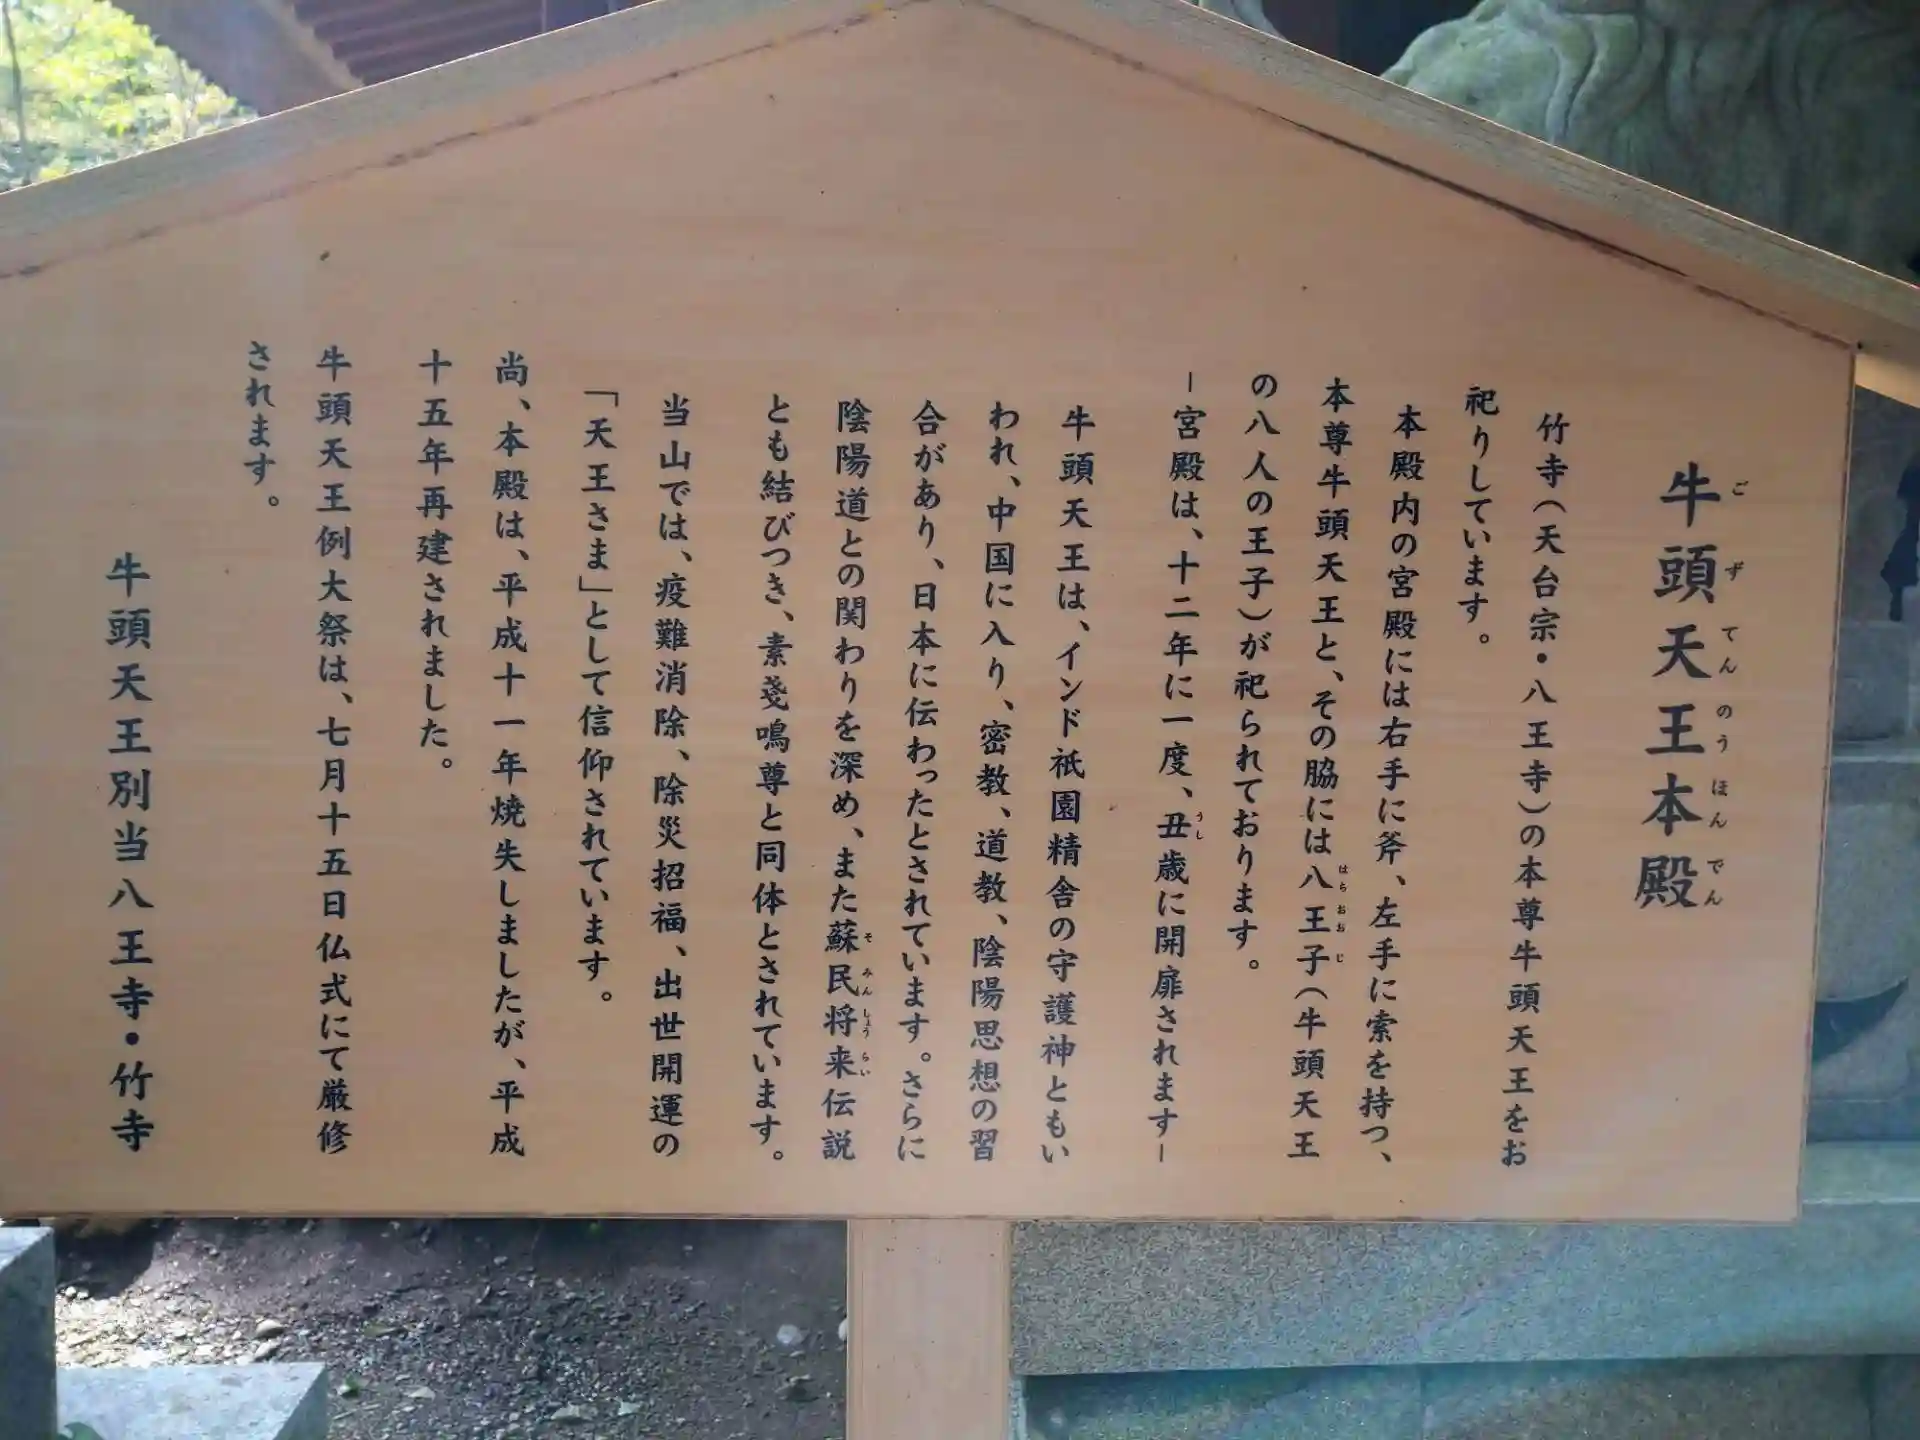 牛頭天王本殿
竹寺（天台宗・八王寺）の本尊牛頭天王をお
祀りしています。
本殿内の宮殿には右手に斧、左手に索を持つ、
本尊牛頭天王と、その脇には八王子（牛頭天王
の八人の王子）が祀られております。
－宮殿は、十二年に一度、丑歳に開扉されます－
牛頭天王は、インド祇園精舎の守護神ともい
われ、中国に入り、密教、道教、陰陽思想の習
合があり、日本に伝わったとされています。さらに
陰陽道との関わりを深め、また蘇民将来伝説
とも結びつき、素戔鳴尊と同体とされています。
当山では、疫難消除、除災招福、出世開運の
「天王さま」として信仰されています。
尚、本殿は、平成十一年焼失しましたが、平成
十五年再建されました。
牛頭天王例大祭は、七月十五日仏式にて厳修
されます。
牛頭天王別当八王寺・竹寺